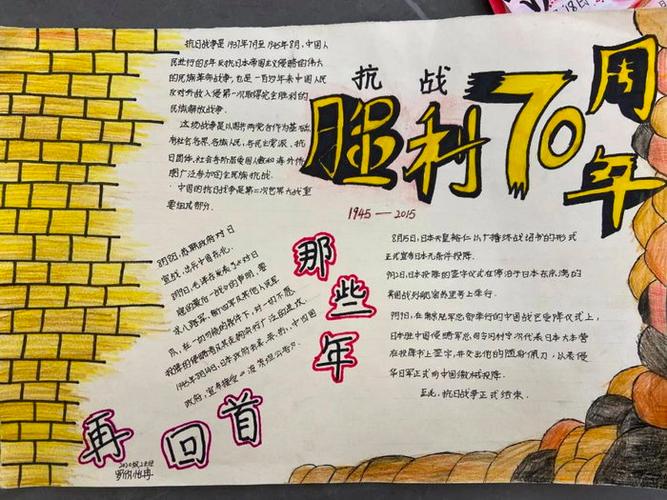 抗战
胜利70周年
1945—2015
抗日战争是1937年7月至1945年8月，中国人
民进行的8年反抗日本帝国主义侵略的伟大
的民族革命战争，也是一百多年来中国人民
反对外敌入侵第一次取得完全胜利的
民族解放战争。
这场战争是以国共两党合作为基础，
有社会各界、各族人民、各民主党派、抗
日团体、社会各阶层爱国人士和海外侨
胞广泛参加的全民族抗战。
中国的抗日战争是第二次世界大战重
要组成部分。
8月8日，苏联政府对日
宣战，出兵中国东北。
8月9日，毛泽东发表了《对日
寇的最后一战》的声明，要
求八路军、新四军及其他人民军
队，在一切可能的条件下，对一切不愿
投降的侵略者及其走狗实行广泛的进攻，
1945年8月14日，日本政府照会美、英、苏、中四国
政府，宣布接受《波茨坦公告》。
那些年
再回首
8月15日，日本天皇裕仁以广播终战诏书的形式
正式宣布日本无条件投降。
9月2日，日本投降的签字仪式在停泊于日本东京湾的
美国战列舰密苏里号上举行。
9月9日，在南京陆军总部举行的中国战区受降仪式上，
日本驻中国侵略军总司令冈村宁次代表日本大本营
在投降书上签字，并交出他的随身佩刀，以表侵
华日军正式向中国缴械投降。
至此，抗日战争正式结束。